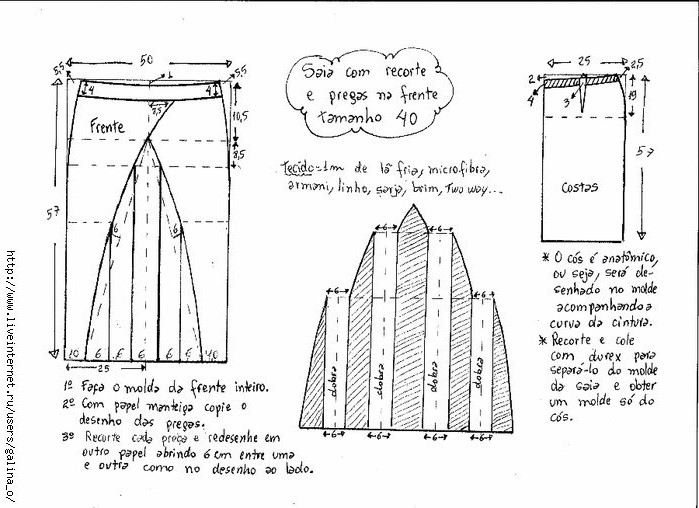 50
5,5
5,5
1
4
4
5,5
10,5
Frente
8,5
57
6
6
10 6 6 6 6 10
25
Saia com recorte
e pregas na frente
tamanho 40
Tecido=1m de lã fria, microfibra,
armani, linho, sarja, brim, Two way...
6
6
6
6
dobra
dobra
dobra
dobra
6
6
6
6
25
2,5
2
4
3
19
57
Costas
* O cós é anatômico,
ou seja, será de-
senhado no molde
acompanhando a
curva da cintura.
* Recorte e cole
com durex para
separá-lo do molde
da saia e obter
um molde só do
cós.
1º Faça o molde da frente inteiro.
2º Com papel manteiga copie o
desenho das pregas.
3º Recorte cada prega e redesenhe em
outro papel abrindo 6 cm entre uma
e outra como no desenho ao lado.
http://www.liveinternet.ru/users/galina_o/